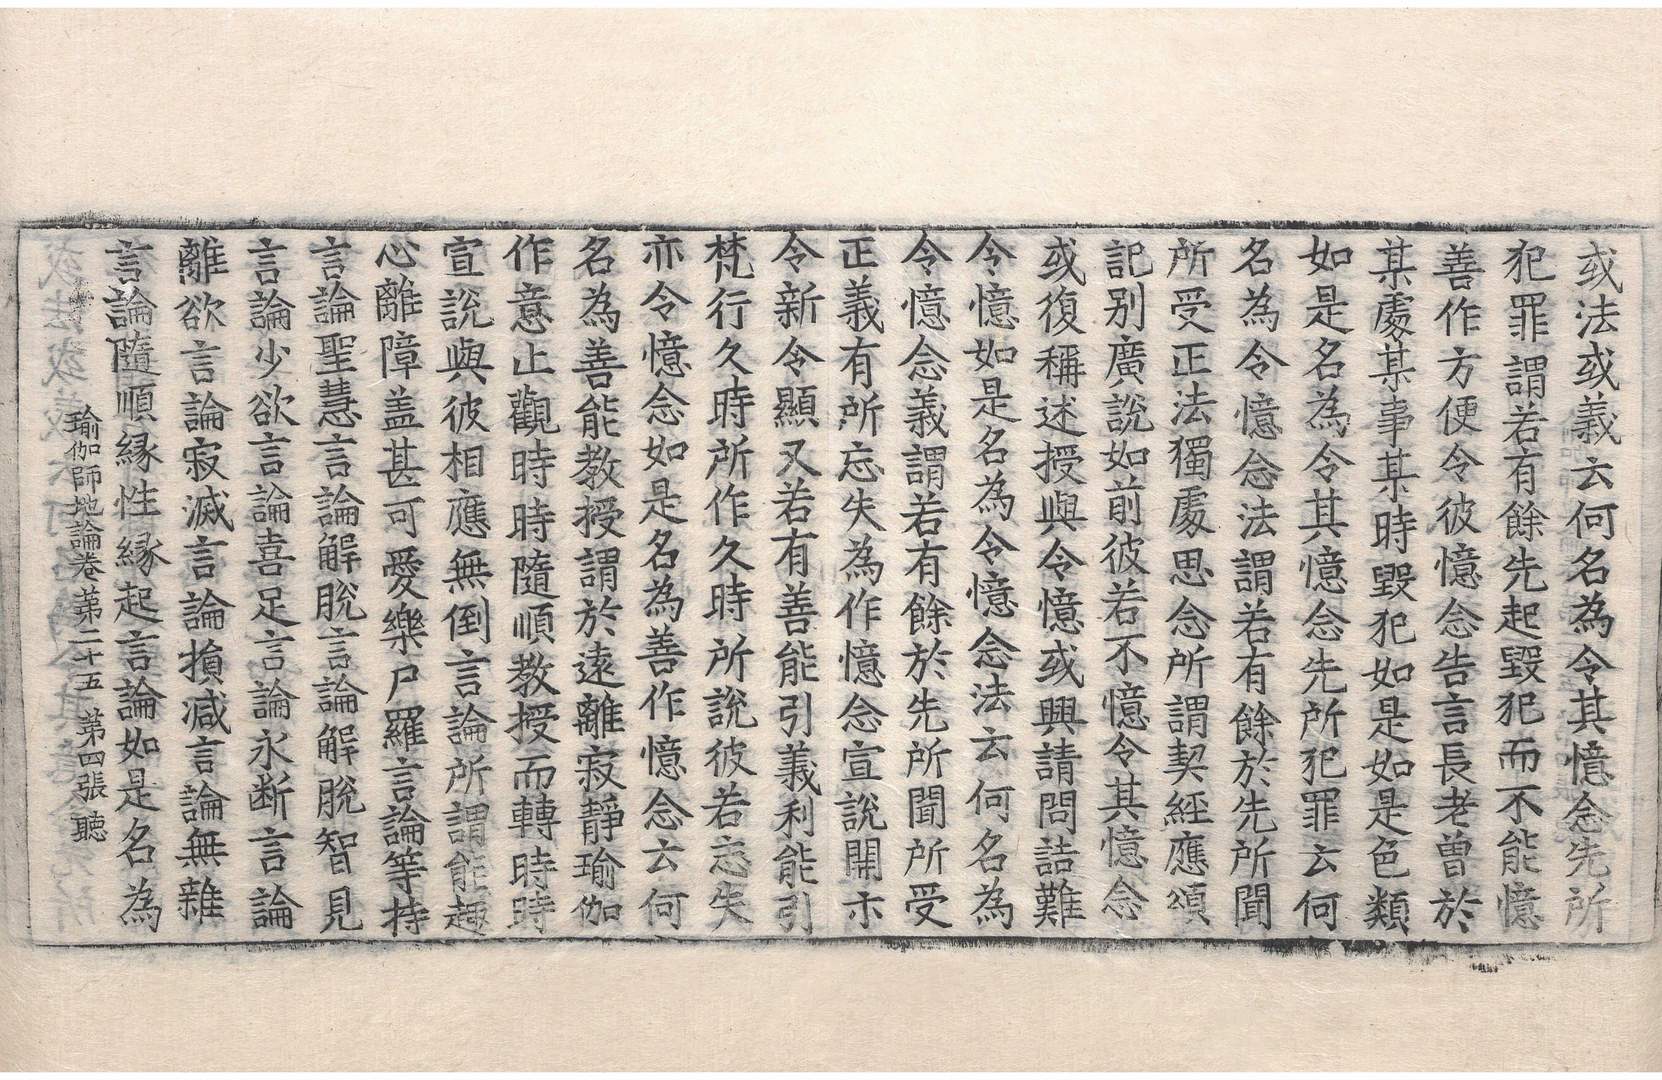 或法或義云何名為令其憶念先所
犯罪謂若有餘先起毀犯而不能憶
善作方便令彼憶念告言長老曾於
某處某事某時毀犯如是如是色類
如是名為令其憶念先所犯罪云何
名為令憶念法謂若有餘於先所聞
所受正法獨處思念所謂契經應頌
記別廣說如前彼若不憶令其憶念
或復稱述授與令憶或興請問詰難
令憶如是名為令憶念法云何名為
令憶念義謂若有餘於先所聞所受
正義有所忘失為作憶念宣說開示
令新令顯又若有善能引義利能引
梵行久時所作久時所說彼若忘失
亦令憶念如是名為善作憶念云何
名為善能教授謂於遠離寂靜瑜伽
作意止觀時時隨順教授而轉時時
宣說與彼相應無倒言論所謂能趣
心離障盖甚可愛樂尸羅言論等持
言論聖慧言論解脫言論解脫智見
言論少欲言論喜足言論永断言論
離欲言論寂滅言論損減言論無雜
言論隨順緣性緣起言論如是名為
瑜伽師地論卷苐二十五 苐四張 聽